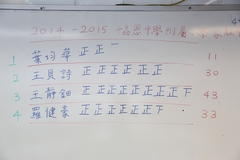 2014-2015
1 葉均華 正正一 11
2 王貝詩 正正正正正正 30
3 王靜鈿 正正正正正正正正下 43
4 羅健豪 正正正正正正下 33